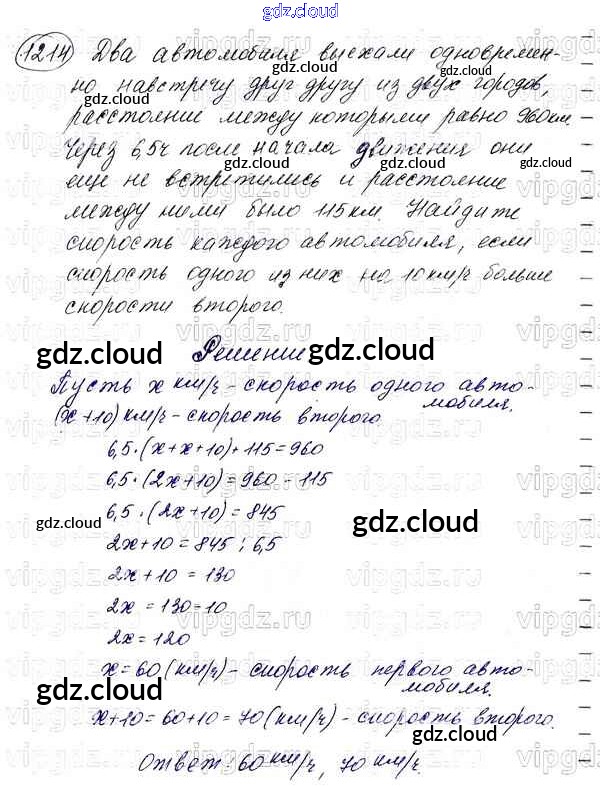 gdz.cloud
1214 Два автомобиля выехали одновремен-
но навстречу друг другу из двух городов,
расстояние между которыми равно 960км.
Через 6,5ч после начала движения они
еще не встретились и расстояние
между ними было 115км. Найдите
скорость каждого автомобиля, если
скорость одного из них на 10км/ч больше
скорости второго.
Решение
Пусть x км/ч - скорость одного авто-
мобиля.
(x+10)км/ч - скорость второго.
6,5·(x+x+10)+115=960
6,5·(2x+10)=960-115
6,5·(2x+10)=845
2x+10=845:6,5
2x+10=130
2x=130=10
2x=120
x=60(км/ч)-скорость первого авто-
мобиля.
x+10=60+10=70(км/ч)-скорость второго.
Ответ: 60км/ч, 70км/ч.